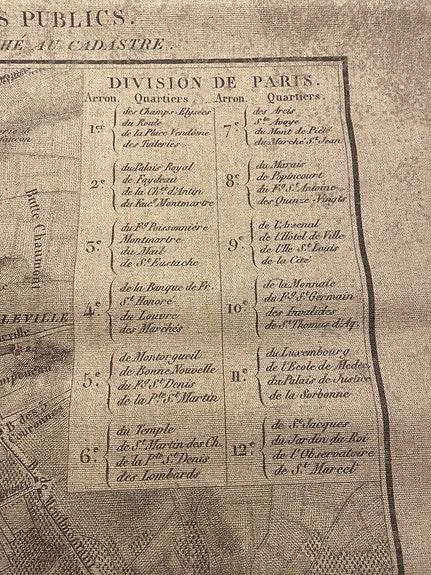 S PUBLICS.
HÉ AU CADASTRE.
DIVISION DE PARIS.
Arron. Quartiers. Arron. Quartiers.
1er
des Champs-Elysées
du Roule
de la Place Vendôme
des Tuileries
2e
du Palais Royal
de Feydeau
de la Chée d'Antin
du Faug Montmartre
3e
du Fg Poissonnière
Montmartre
du Mail
de St Eustache
4e
de la Banque de Fr.
St Honoré
du Louvre
des Marchés
5e
de Montorgueil
de Bonne Nouvelle
du Fg St Denis
de la Pte St Martin
6e
du Temple
de St Martin des Ch.
de la Pte St Denis
des Lombards
7e
des Arcis
Ste Avoye
du Mont de Piété
du Marché St Jean
8e
du Marais
de Popincourt
du Fg St Antoine
des Quinze-Vingts
9e
de l'Arsenal
de l'Hôtel de Ville
de l'Ile St Louis
de la Cité
10e
de la Monnaie
du Fg St Germain
des Invalides
de St Thomas d'Aq.
11e
du Luxembourg
de l'Ecole de Médec.
du Palais de Justice
de la Sorbonne
12e
de St Jacques
du Jardin du Roi
de l'Observatoire
de St Marcel
Butte Chaumont
LEVILLE
eville
B. des 3
Couronnes
B. de Menilmontant